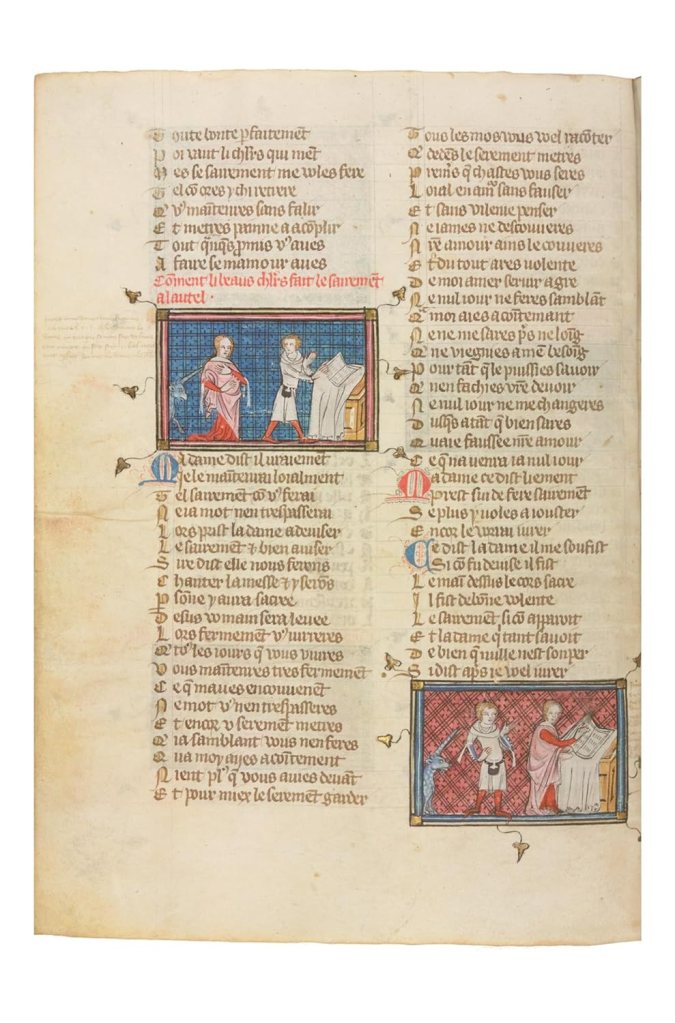 Toute bonte pfaitement
Poi vaut li chlrs qui ment
Mes se sairement me voles fere
Tel con ores ychi retrere
Q vous maintenres sans falir
Et metres painne a acomplir
Tout qnqs pmis vous aves
A faire se mamour aves
Coment li beaus chlrs fait le sairement
a lautel
Ma dame dist il vraiement
Je le maintenrai loialment
Tel sairement con vous ferai
Ne ia mot nen trespasserai
Lors prist la dame a deviser
Le sairement et bien aviser
Sire dist elle nous ferons
Chanter la messe et y serons
Psone y aura sacree
Desus vo main sera levee
Lors fermement vous iurreres
Q tos les iours q vous vivres
Vous maintenres tres fermement
Ce q maves encouvenent
Ne mot vous nen trespasseres
Et encor u serement metres
Q ia samblant vous nen feres
Qua moy aies acointement
Nient plus q vous avies devant
Et pour miex le serement garder
Tous les mos vous vel raconter
Q dedens le serement metres
Premiers q chastes vous seres
Loial en amour sans fauser
Et sans vilenie penser
Ne iames ne descouveres
Nostre amour ains le couveres
Et du tout ares volente
De moi amer servir a gre
Ne nul iour ne feres samblant
Q moi aies acointemant
Ne ne me sares pres ne loing
Q ne viegnies a men besoing
Pour tant q le puissies savoir
Q nen fachies vostre devoir
Ne nul iour ne me changeres
Dusqs a tant q bien sares
Quaie faussee nostre amour
Ce q na venra ia nul iour
Ma dame ce dist liement
Prest sui de fere sairement
Se plus y voles aiouster
Encor le vorrai iurer
Ce dist la dame il me soufist
Si con su devise il fist
Le main dessus le cors sacre
Il fist de bonne volente
Le sairement si con apparoit
Et la dame q tant savoit
De bien q nulle nest son per
Si dist apres ie vel iurer